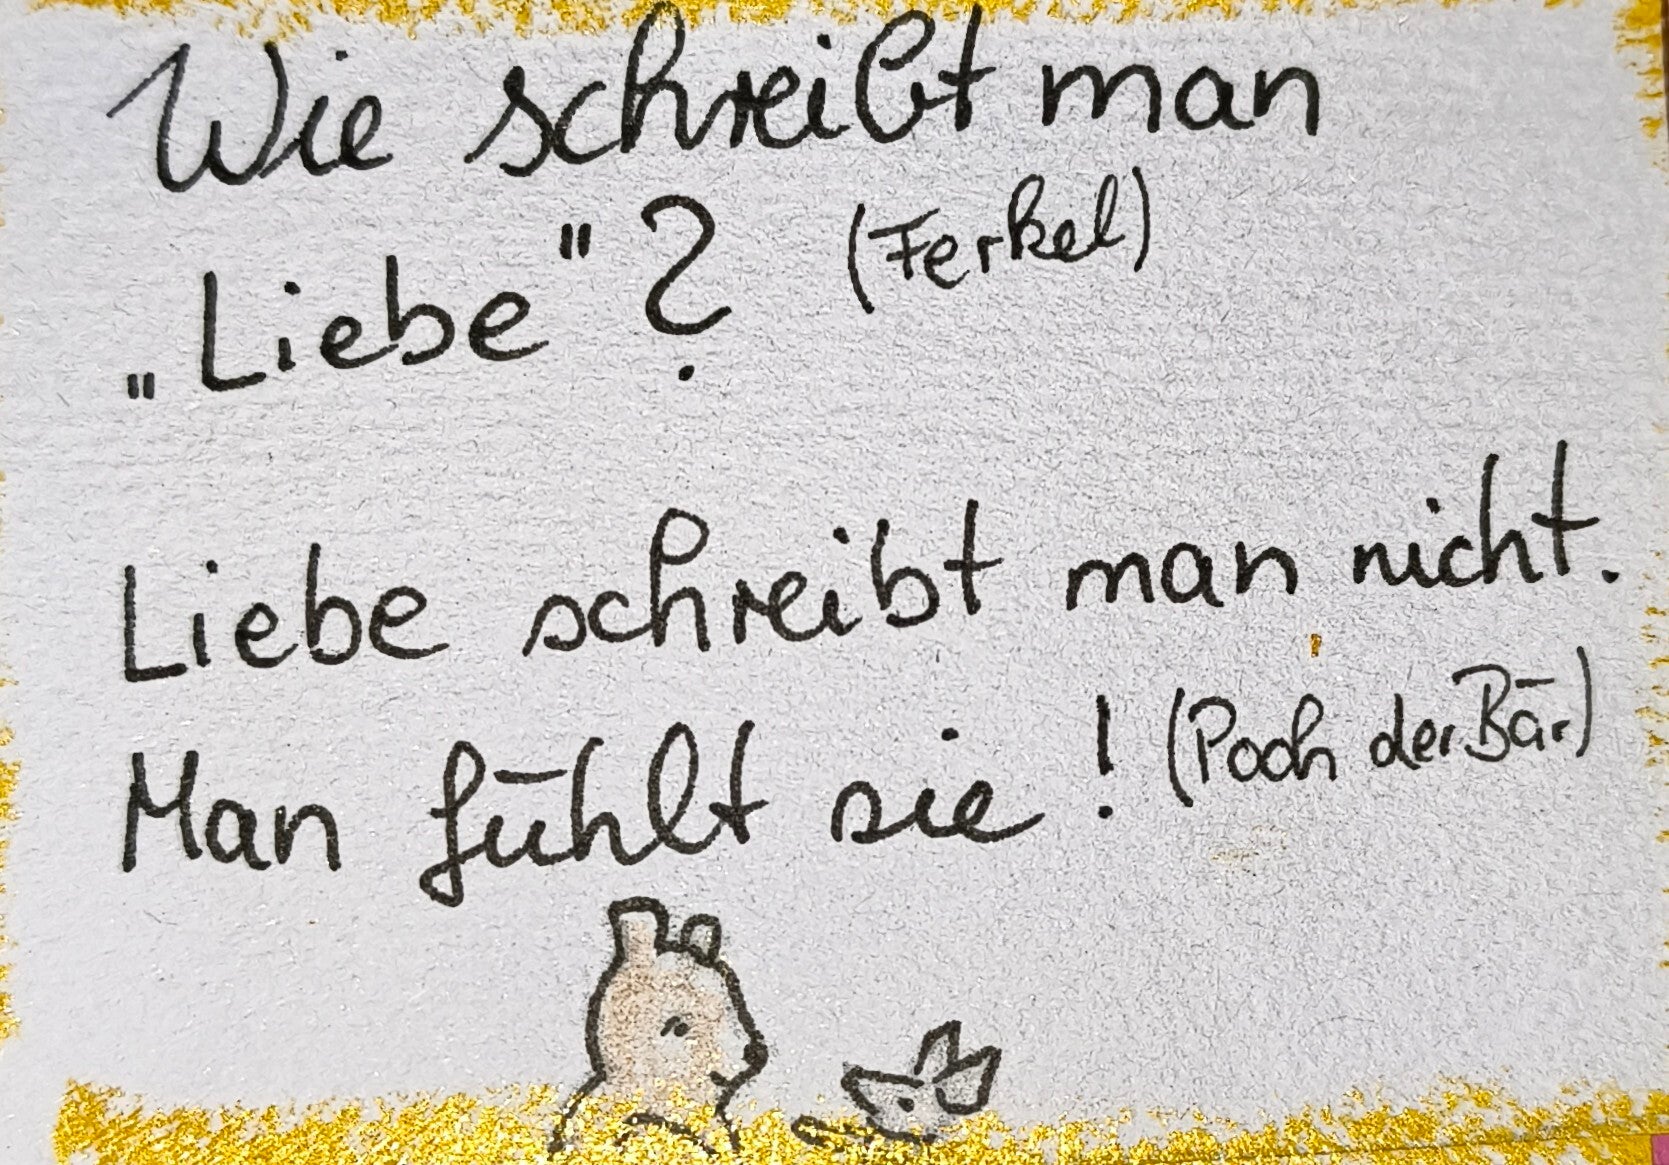 Wie schreibt man
„Liebe"? (Ferkel)
Liebe schreibt man nicht.
Man fühlt sie! (Pooh der Bär)